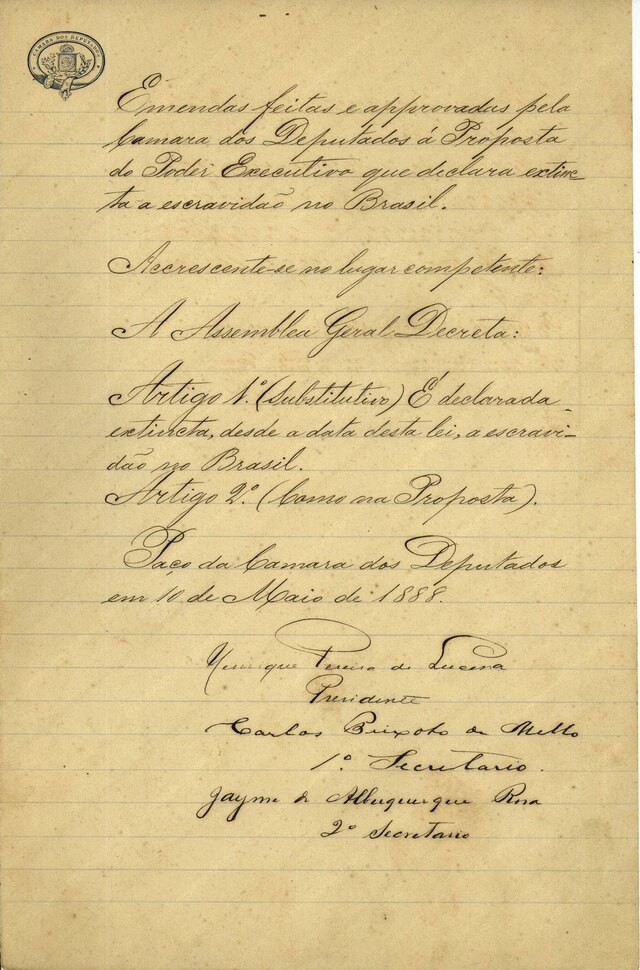 CAMARA DOS DEPUTADOS
Emendas feitas e approvadas pela
Camara dos Deputados á Proposta
do Poder Executivo que declara extinc-
ta a escravidão no Brasil.
Accrescente-se no lugar competente:
A Assemblea Geral Decreta:
Artigo 1.º (Substitutivo) É declarada
extincta, desde a data desta lei, a escravi-
dão no Brasil.
Artigo 2.º (Como na Proposta).
Paço da Camara dos Deputados
em 10 de Maio de 1888.
Henrique Pereira de Lucena
Presidente
Carlos Peixoto de Mello
1º Secretario.
Jayme de Albuquerque Rosa
2º Secretario